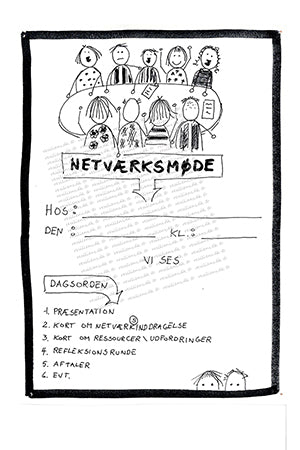 NETVÆRKSMØDE
HOS:
DEN: KL.:
VI SES
DAGSORDEN
1. PRÆSENTATION
2. KORT OM NETVÆRK(S)INDDRAGELSE
3. KORT OM RESSOURCER\UDFORDRINGER
4. REFLEKSIONSRUNDE
5. AFTALER
6. EVT.